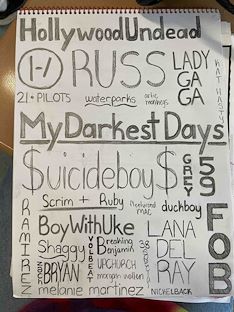 Hollywood Undead
|-/
RUSS
LADY GAGA
KAT HASEY
21 PILOTS
waterparks
artic monkeys
My Darkest Days
$uicideboy$
GREY 59
Scrim + Ruby
fleetwood mac
duckboy
RAMIREZ
BoyWithUke
Shaggy
VOLBEAT
Breaking Benjamin
UPCHURCH
morgan wallen
LANA DEL RAY
FOB
BRYAN
melanie martinez
NICKELBACK